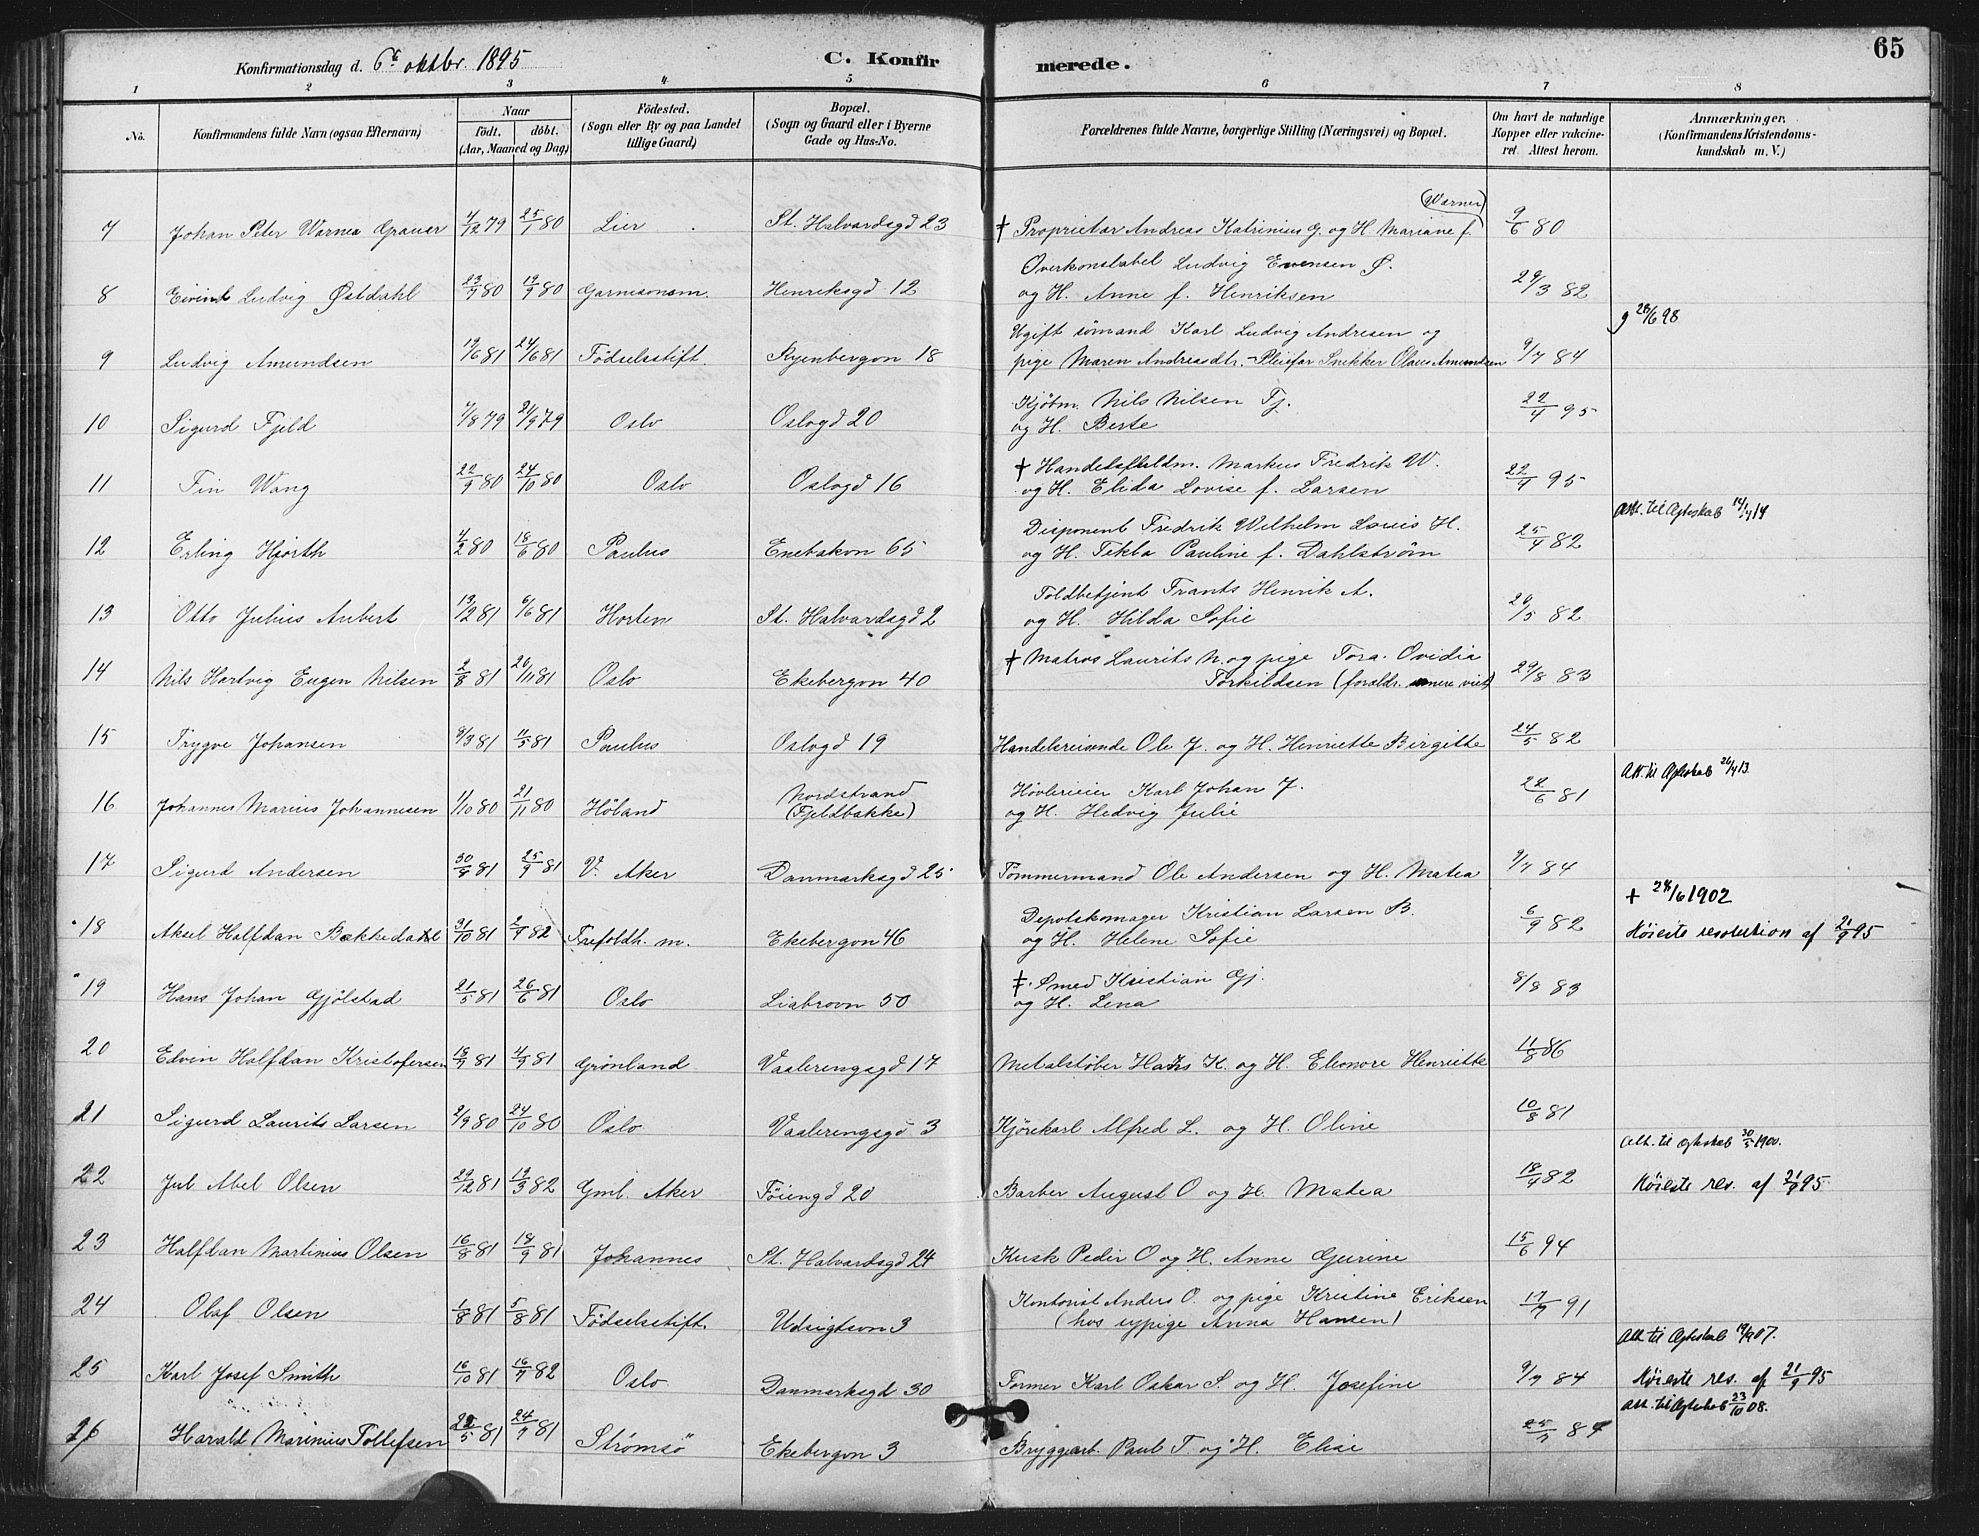 65
Konfirmationsdag d. 6te oktbr. 1895
C. Konfirmerede.
1 2 3 4 5 6 7 8
No.
Konfirmandens fulde Navn (ogsaa Efternavn)
Naar født. døbt. (Aar, Maaned og Dag)
Fødested. (Sogn eller By og paa Landet tillige Gaard)
Bopæl. (Sogn og Gaard eller i Byerne Gade og Hus-No.
Forældrenes fulde Navne, borgerlige Stilling (Næringsvei) og Bopæl.
Om havt de naturlige Kopper eller vakcineret. Attest herom.
Anmærkninger. (Konfirmandens Kristendomskundskab m. V.)
(Warner)
7 Johan Peter Warnea Grauer 4/12 79 25/1 80 Lier St. Halvardsgd 23 † Proprietær Andreas Katrinius G. og H. Mariane f. 9/6 80
8 Eivind Ludvig Østdahl 23/7 80 19/9 80 Garnisonsm. Henriksgd 12 Overkonstabel Ludvig Evensen Ø.
og H. Anne f. Henriksen 29/3 82
g 28/6 98
9 Ludvig Amundsen 19/6 81 24/6 81 Fødselsstift. Ryenbergvn 18 Ugift sømand Karl Ludvig Andresen og
pige Maren Andreasdtr. - Pleiefar Snekker Olaus Amundsen 9/7 84
10 Sigurd Fjeld 7/8 79 21/9 79 Oslo Oslogd 20 Kjøbm. Nils Nilsen Fj.
og H. Berte 22/4 95
11 Fin Wang 22/9 80 24/10 80 Oslo Oslogd 16 † Handelsfuldm. Markus Fredrik W.
og H. Elida Lovise f. Larsen 22/4 95
Att. til Ægteskab 14/4 14
12 Erling Hjorth 4/2 80 18/6 80 Paulus Enebakvn 65 Disponent Fredrik Wilhelm Louis H.
og H. Tekla Pauline f. Dahlstrøm 25/4 82
13 Otto Julius Aubert 13/2 81 6/6 81 Horten St. Halvardsgd 2 Toldbetjent Frants Henrik A.
og H. Hilda Sofie 26/5 82
14 Nils Hartvig Eugen Nilsen 2/8 81 20/11 81 Oslo Ekebergvn 40 † Matros Laurits N. og pige Tora Ovidia
Torkildsen (forældr. senere viet) 29/8 83
15 Trygve Johansen 8/3 81 11/5 81 Paulus Oslogd 19 Handelsreisende Ole J. og H. Henriette Birgitte 24/5 82
Att. til Ægteskab 26/4 13.
16 Johannes Marius Johannesen 11/10 80 21/11 80 Høland Nordstrand (Fjeldbakke) Høvlerieier Karl Johan J.
og H. Hedvig Julie 22/6 81
17 Sigurd Andersen 30/4 81 25/9 81 V. Aker Danmarksgd 25 Tømmermand Ole Andersen og H. Matea 9/7 84
+ 28/6 1902
18 Aksel Halfdan Bækkedahl 31/10 81 2/7 82 Trefoldh. m. Ekebergvn 46 Depotskomager Kristian Larsen B.
og H. Helene Sofie 6/9 82 Høieste resolution af 21/9 95
19 Hans Johan Gjølstad 21/5 81 26/6 81 Oslo Liabrovn 50 † Smed Kristian Gj.
og H. Lena 8/8 83
20 Edvin Halfdan Kristofersen 18/7 81 4/9 81 Grønland Vaalerengsgd 17 Metalstøber Hans K. og H. Eleonore Henriette 11/8 86
21 Sigurd Laurits Larsen 2/9 80 24/10 80 Oslo Vaalerengsgd 3 Kjørekarl Alfred L. og H. Oline 10/8 81
Att. til Ægteskab 30/5 1900.
22 Jul Abel Olsen 29/12 81 19/3 82 Gml. Aker Tøiengd 20 Barber August O og H. Matea 18/4 82 Høieste res. af 21/9 95.
23 Halfdan Martinius Olsen 16/8 81 18/9 81 Johannes St. Halvardsgd 24 Kusk Peder O og H. Anne Gurine 15/6 94
24 Olaf Olsen 1/8 81 5/8 81 Fødselsstift. Udsigtsvn 3 Kontorist Anders O. og pige Kristine Eriksen
(hos sypige Anna Hansen) 17/7 91
Att. til Ægteskab 19/9 07.
25 Karl Josef Smith 16/10 81 16/7 82 Oslo Danmarksgd 30 Former Karl Oskar S. og H. Josefine 9/7 84 Høieste res. af 21/9 95
Att. til Ægteskab 23/10 08.
26 Harald Marinius Tollefsen 22/5 81 24/7 81 Strømsø Ekebergvn 3 Bryggearb. Paul T. og H. Elise 25/7 84